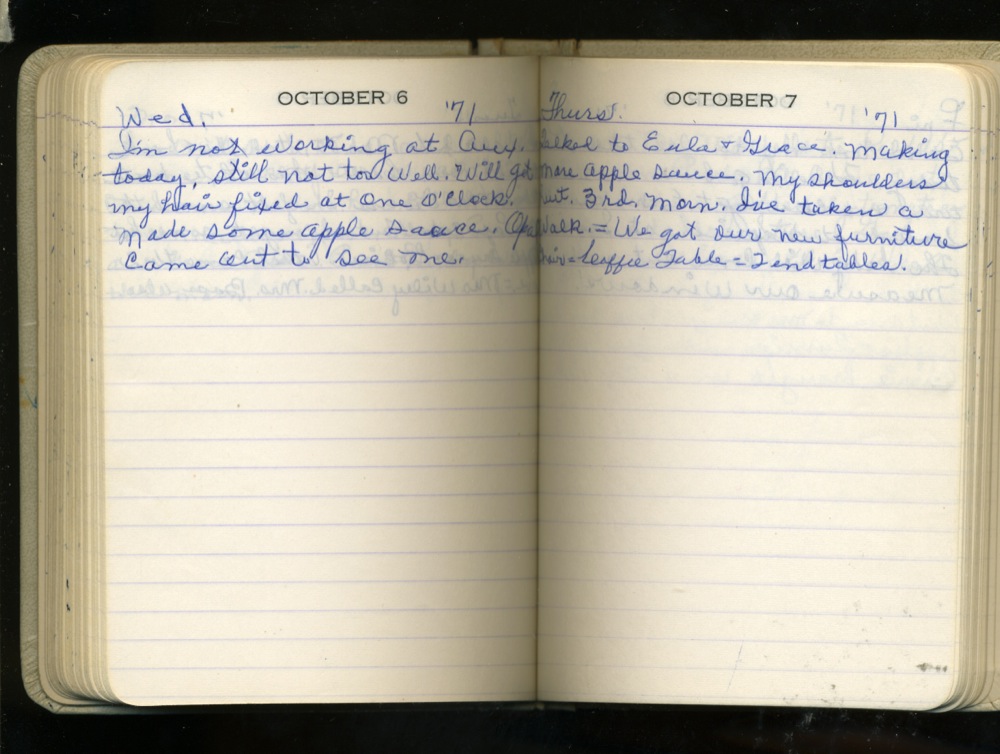 OCTOBER 6
Wed. '71
I'm not working at Aux.
today, still not too Well. Will get
my hair fixed at One O'Clock.
Made some apple sauce.
Came out to see me.
OCTOBER 7
Thurs. '71
Talked to Eula & Grace. Making
more apple sauce. My shoulders
hurt. 3rd. Morn. I've taken a
Walk. = We got our new furniture
Chair = Coffie Table = 2 end tables.